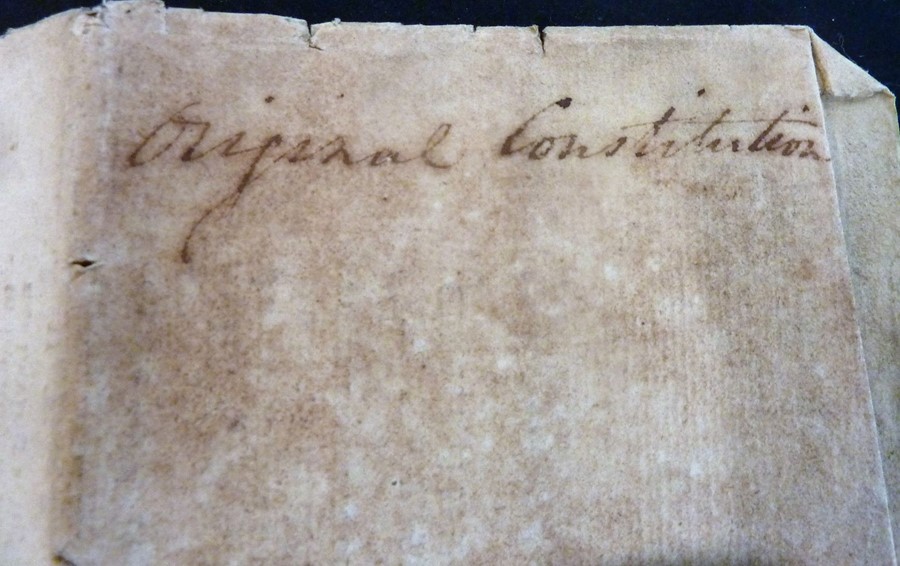 Original Constitution